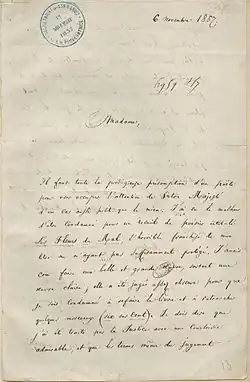 6 novembre 1857.
Madame,
Il faut toute la prodigieuse présomption d'un poëte
pour oser occuper l'attention de Votre Majesté
d'un cas aussi petit que le mien. J'ai eu le malheur
d'être condamné pour un recueil de poésies intitulé
Les Fleurs du Mal, l'horrible franchise de mon
titre ne m'ayant pas suffisamment protégé. J'avais
cru faire une belle et grande œuvre, surtout une
œuvre claire; elle a été jugée assez obscure pour que
je sois condamné à refaire le livre et à retrancher
quelques morceaux (six sur cent). Je dois dire que
j'ai été traité par la Justice avec une courtoisie
admirable, et que les termes même du jugement